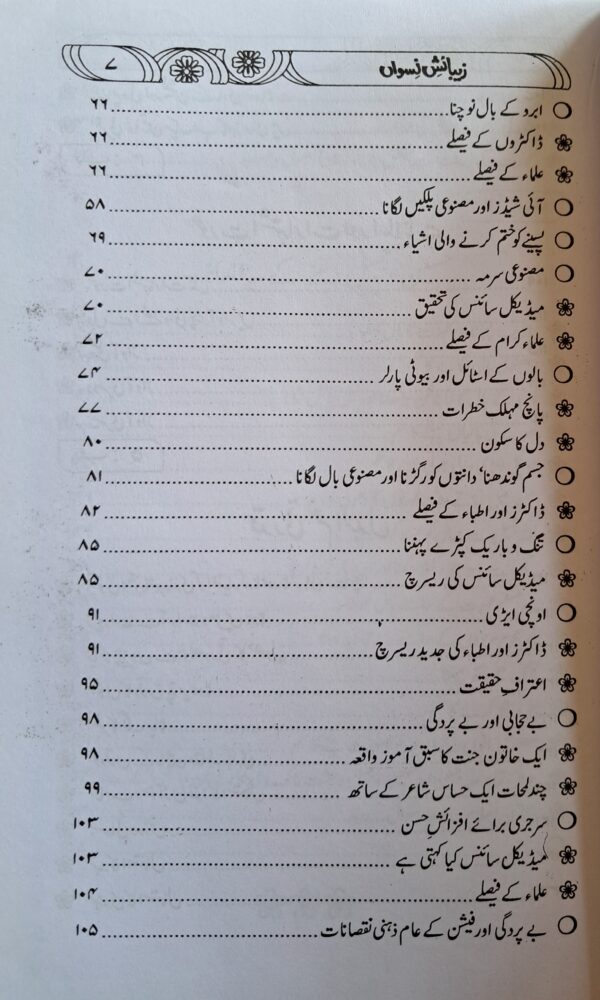 زیبائشِ نسواں ۷
ابرو کے بال نوچنا ۶۶
ڈاکٹروں کے فیصلے ۶۶
علماء کے فیصلے ۶۶
آئی شیڈز اور مصنوعی پلکیں لگانا ۵۸
پسینے کو ختم کرنے والی اشیاء ۶۹
مصنوعی سرمہ ۷۰
میڈیکل سائنس کی تحقیق ۷۰
علماء کرام کے فیصلے ۷۲
بالوں کے اسٹائل اور بیوٹی پارلر ۷۴
پانچ مہلک خطرات ۷۷
دل کا سکون ۸۰
جسم گوندھنا‘ دانتوں کو رگڑنا اور مصنوعی بال لگانا ۸۱
ڈاکٹرز اور اطباء کے فیصلے ۸۲
تنگ و باریک کپڑے پہننا ۸۵
میڈیکل سائنس کی ریسرچ ۸۵
اونچی ایڑی ۹۱
ڈاکٹرز اور اطباء کی جدید ریسرچ ۹۱
اعترافِ حقیقت ۹۵
بے حجابی اور بے پردگی ۹۸
ایک خاتون جنت کا سبق آموز واقعہ ۹۸
چند لمحات ایک حساس شاعر کے ساتھ ۹۹
سرجری برائے افزائشِ حسن ۱۰۳
میڈیکل سائنس کیا کہتی ہے ۱۰۳
علماء کے فیصلے ۱۰۴
بے پردگی اور فیشن کے عام ذہنی نقصانات ۱۰۵